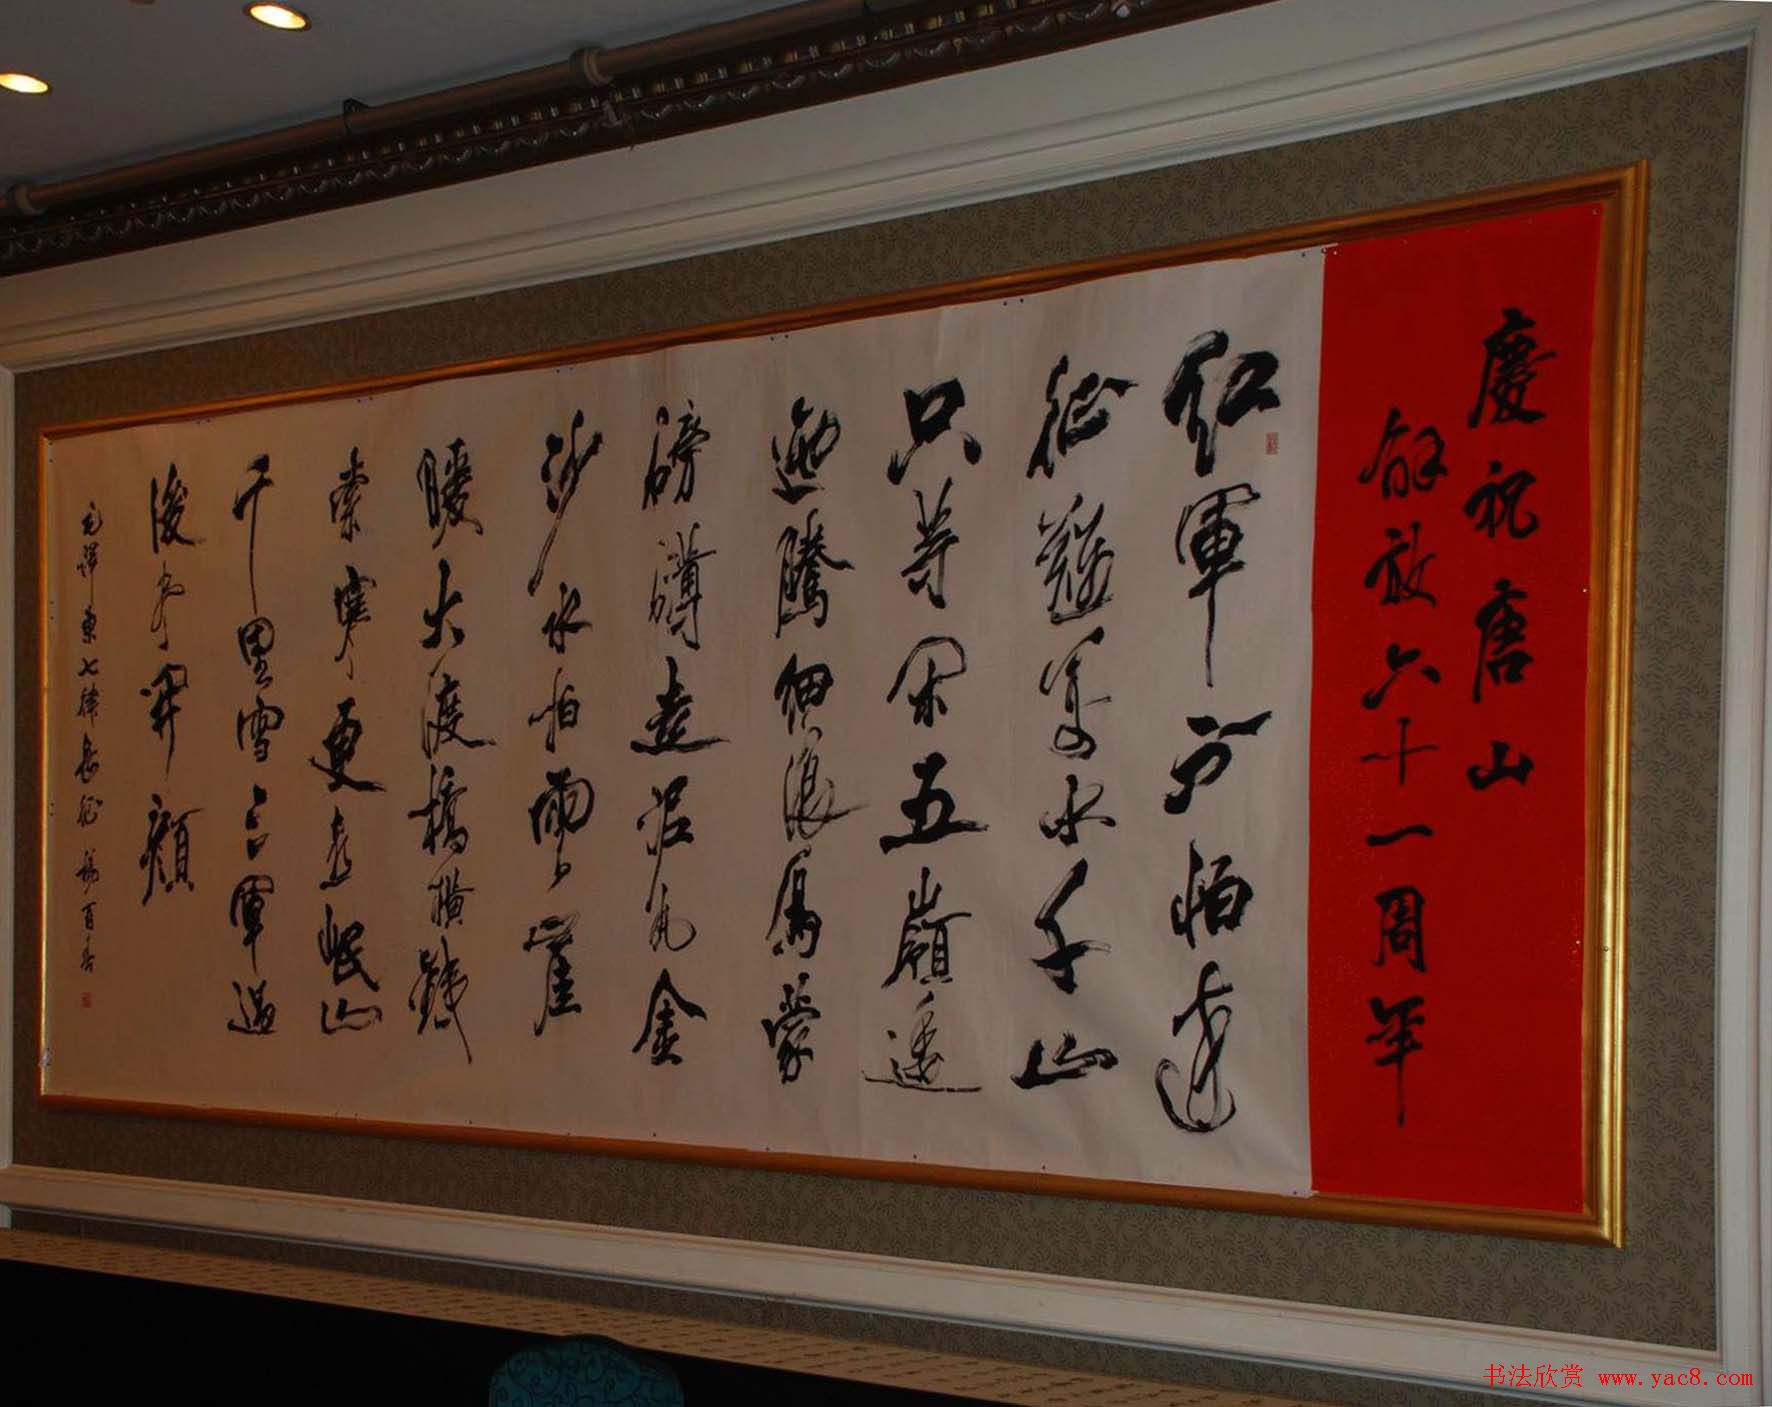 慶祝唐山
解放六十一周年
紅軍不怕遠
征難萬水千山
只等閑五嶺逶
迤騰細浪烏蒙
磅礴走泥丸金
沙水拍雲崖
暖大渡橋橫鐵
索寒更喜岷山
千里雪三軍過
後盡開顏
毛澤東七律長征
书法欣赏 www.yac8.com